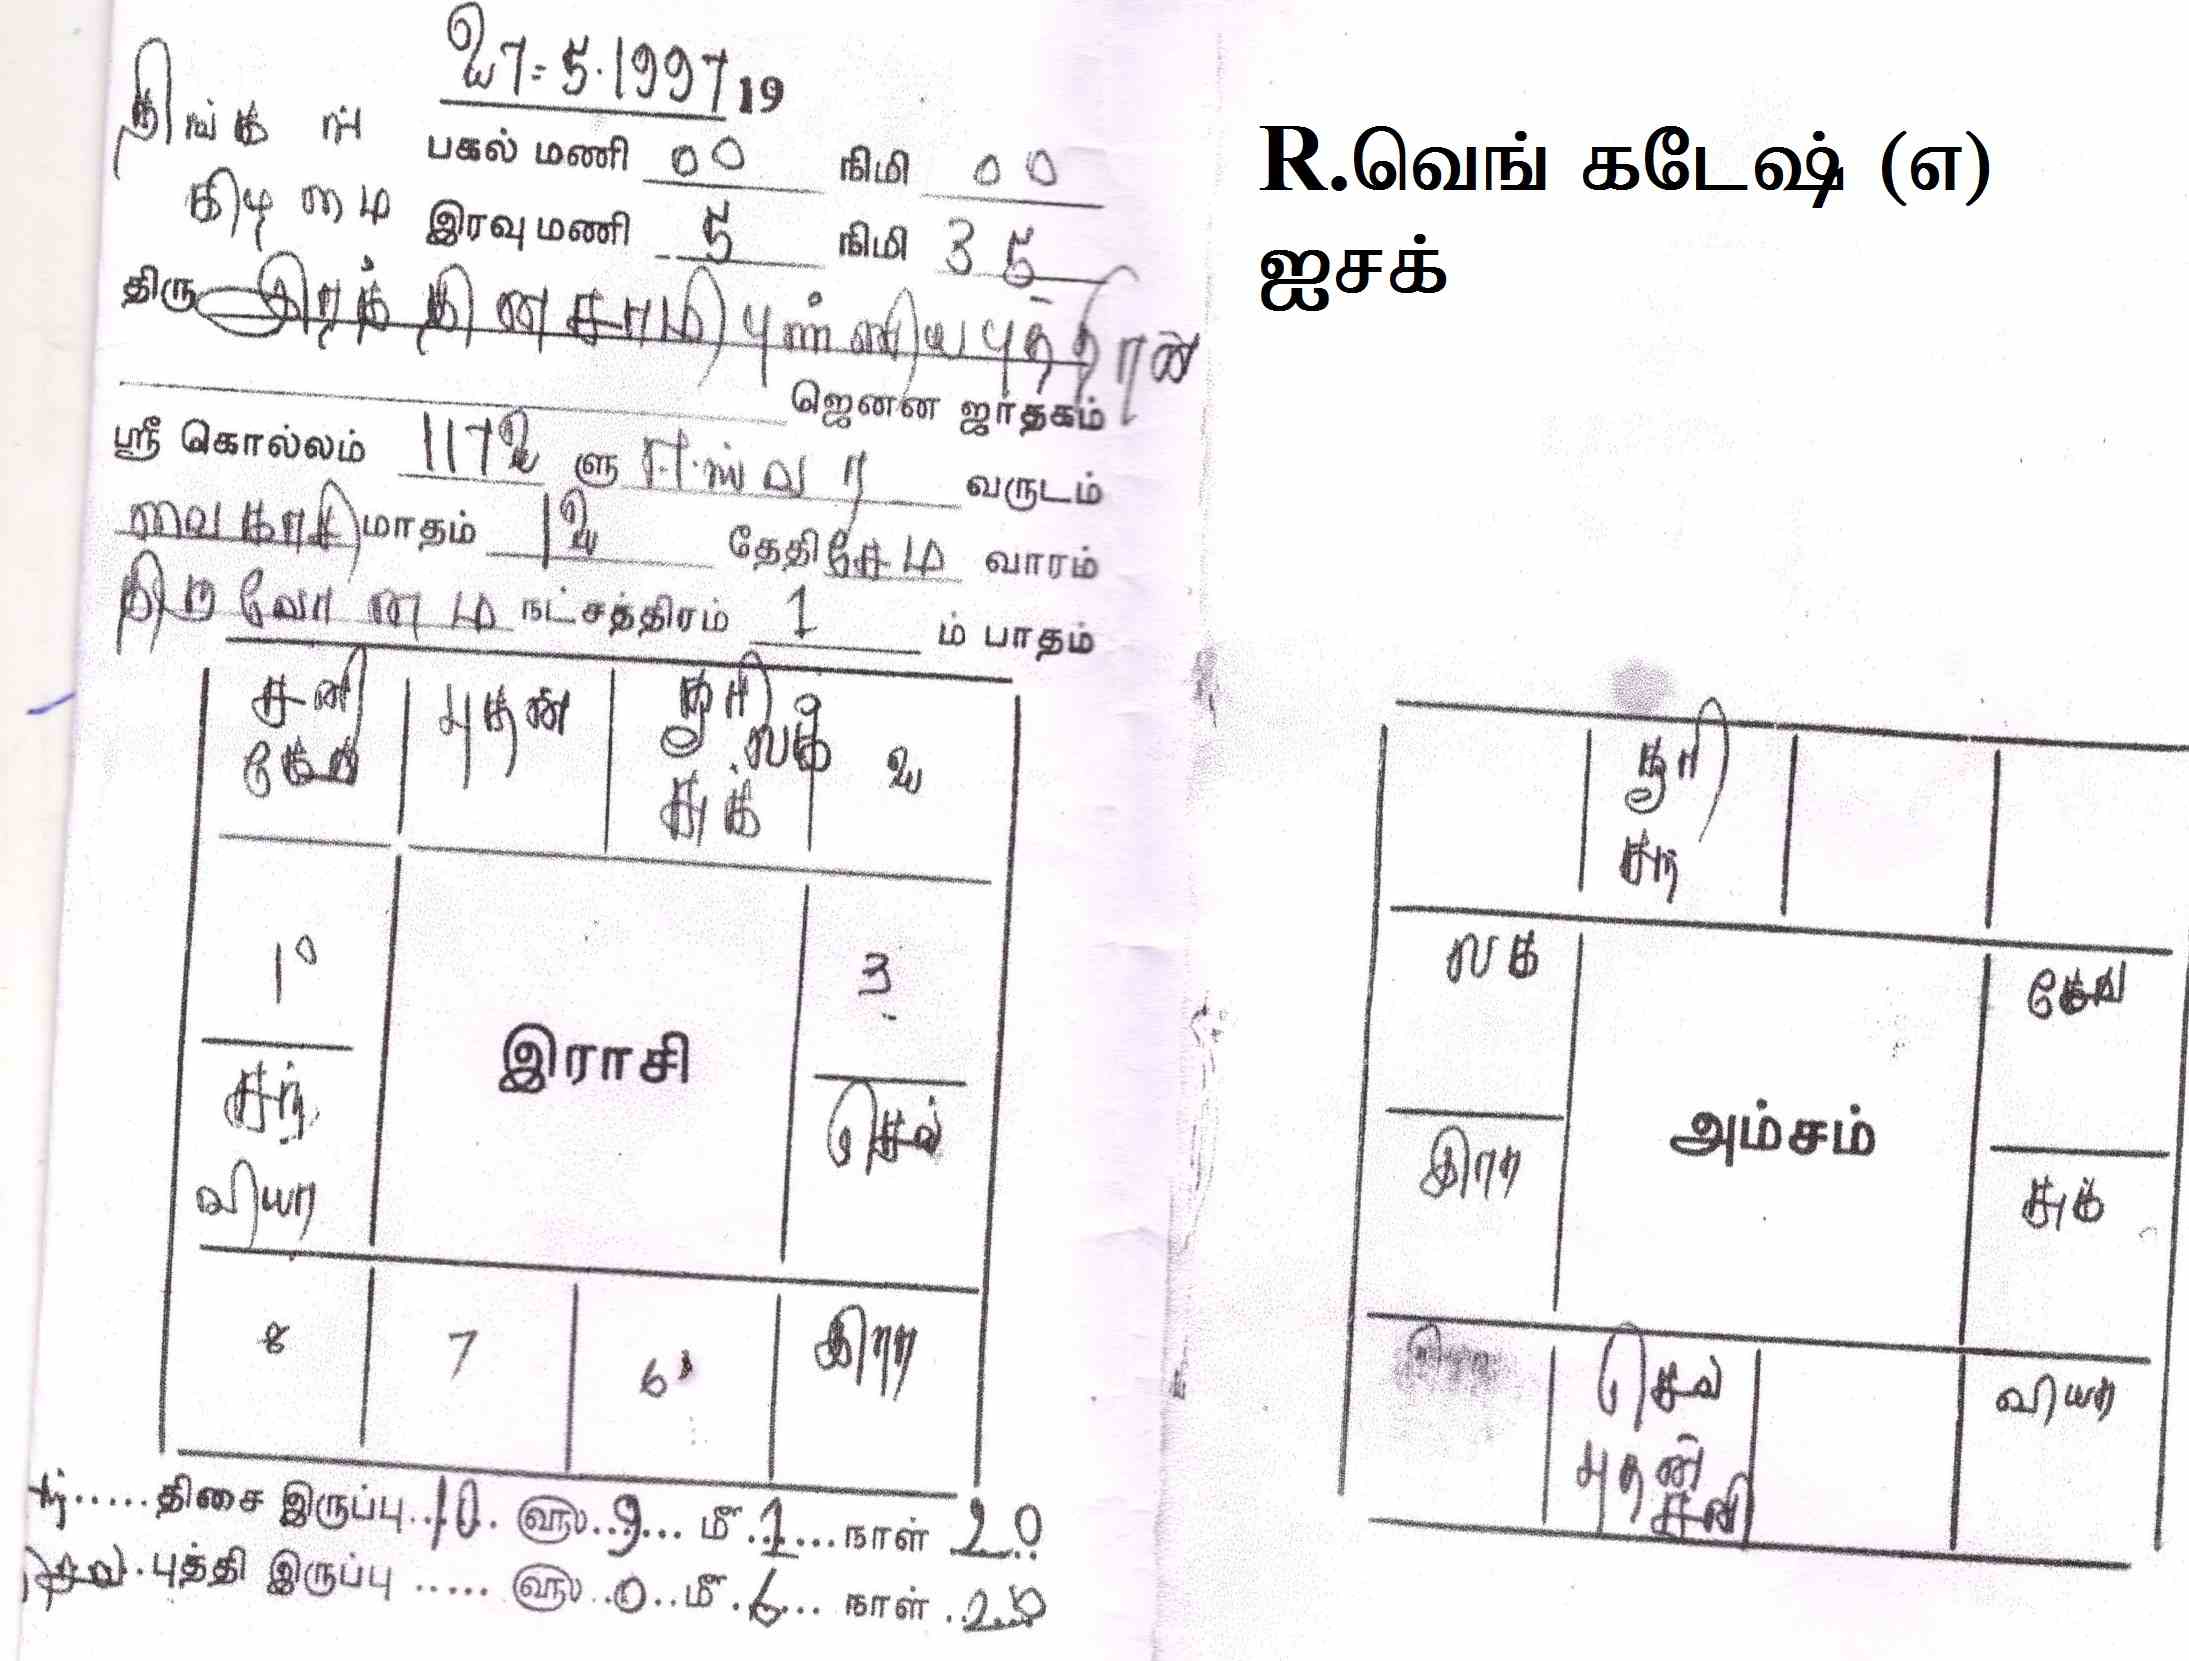 27-5-1997 19
திங்கள் பகல் மணி 00 நிமி 00
கிழமை இரவு மணி 5 நிமி 35
திரு இரத்தினசாமி புண்ணிய புத்திரன்
ஜெனன ஜாதகம்
ஸ்ரீ கொல்லம் 1172 ளு ஈஸ்வர வருடம்
வைகாசி மாதம் 12 தேதி சோம வாரம்
திருவோணம் நட்சத்திரம் 1 ம் பாதம்
சனி புதன் சூரி லக் 2
கேது சுக்
10 3
இராசி
சந் செவ்
வியா
8 7 6 இரா
சந் திசை இருப்பு 10 வரு 9 மீ 1 நாள் 20
செவ் புத்தி இருப்பு வரு 0 மீ 6 நாள்
R.வெங் கடேஷ் (எ)
ஐசக்
சூரி
சந்
லக் கேது
அம்சம்
இரா சுக்
செவ் வியா
புதன்
சனி